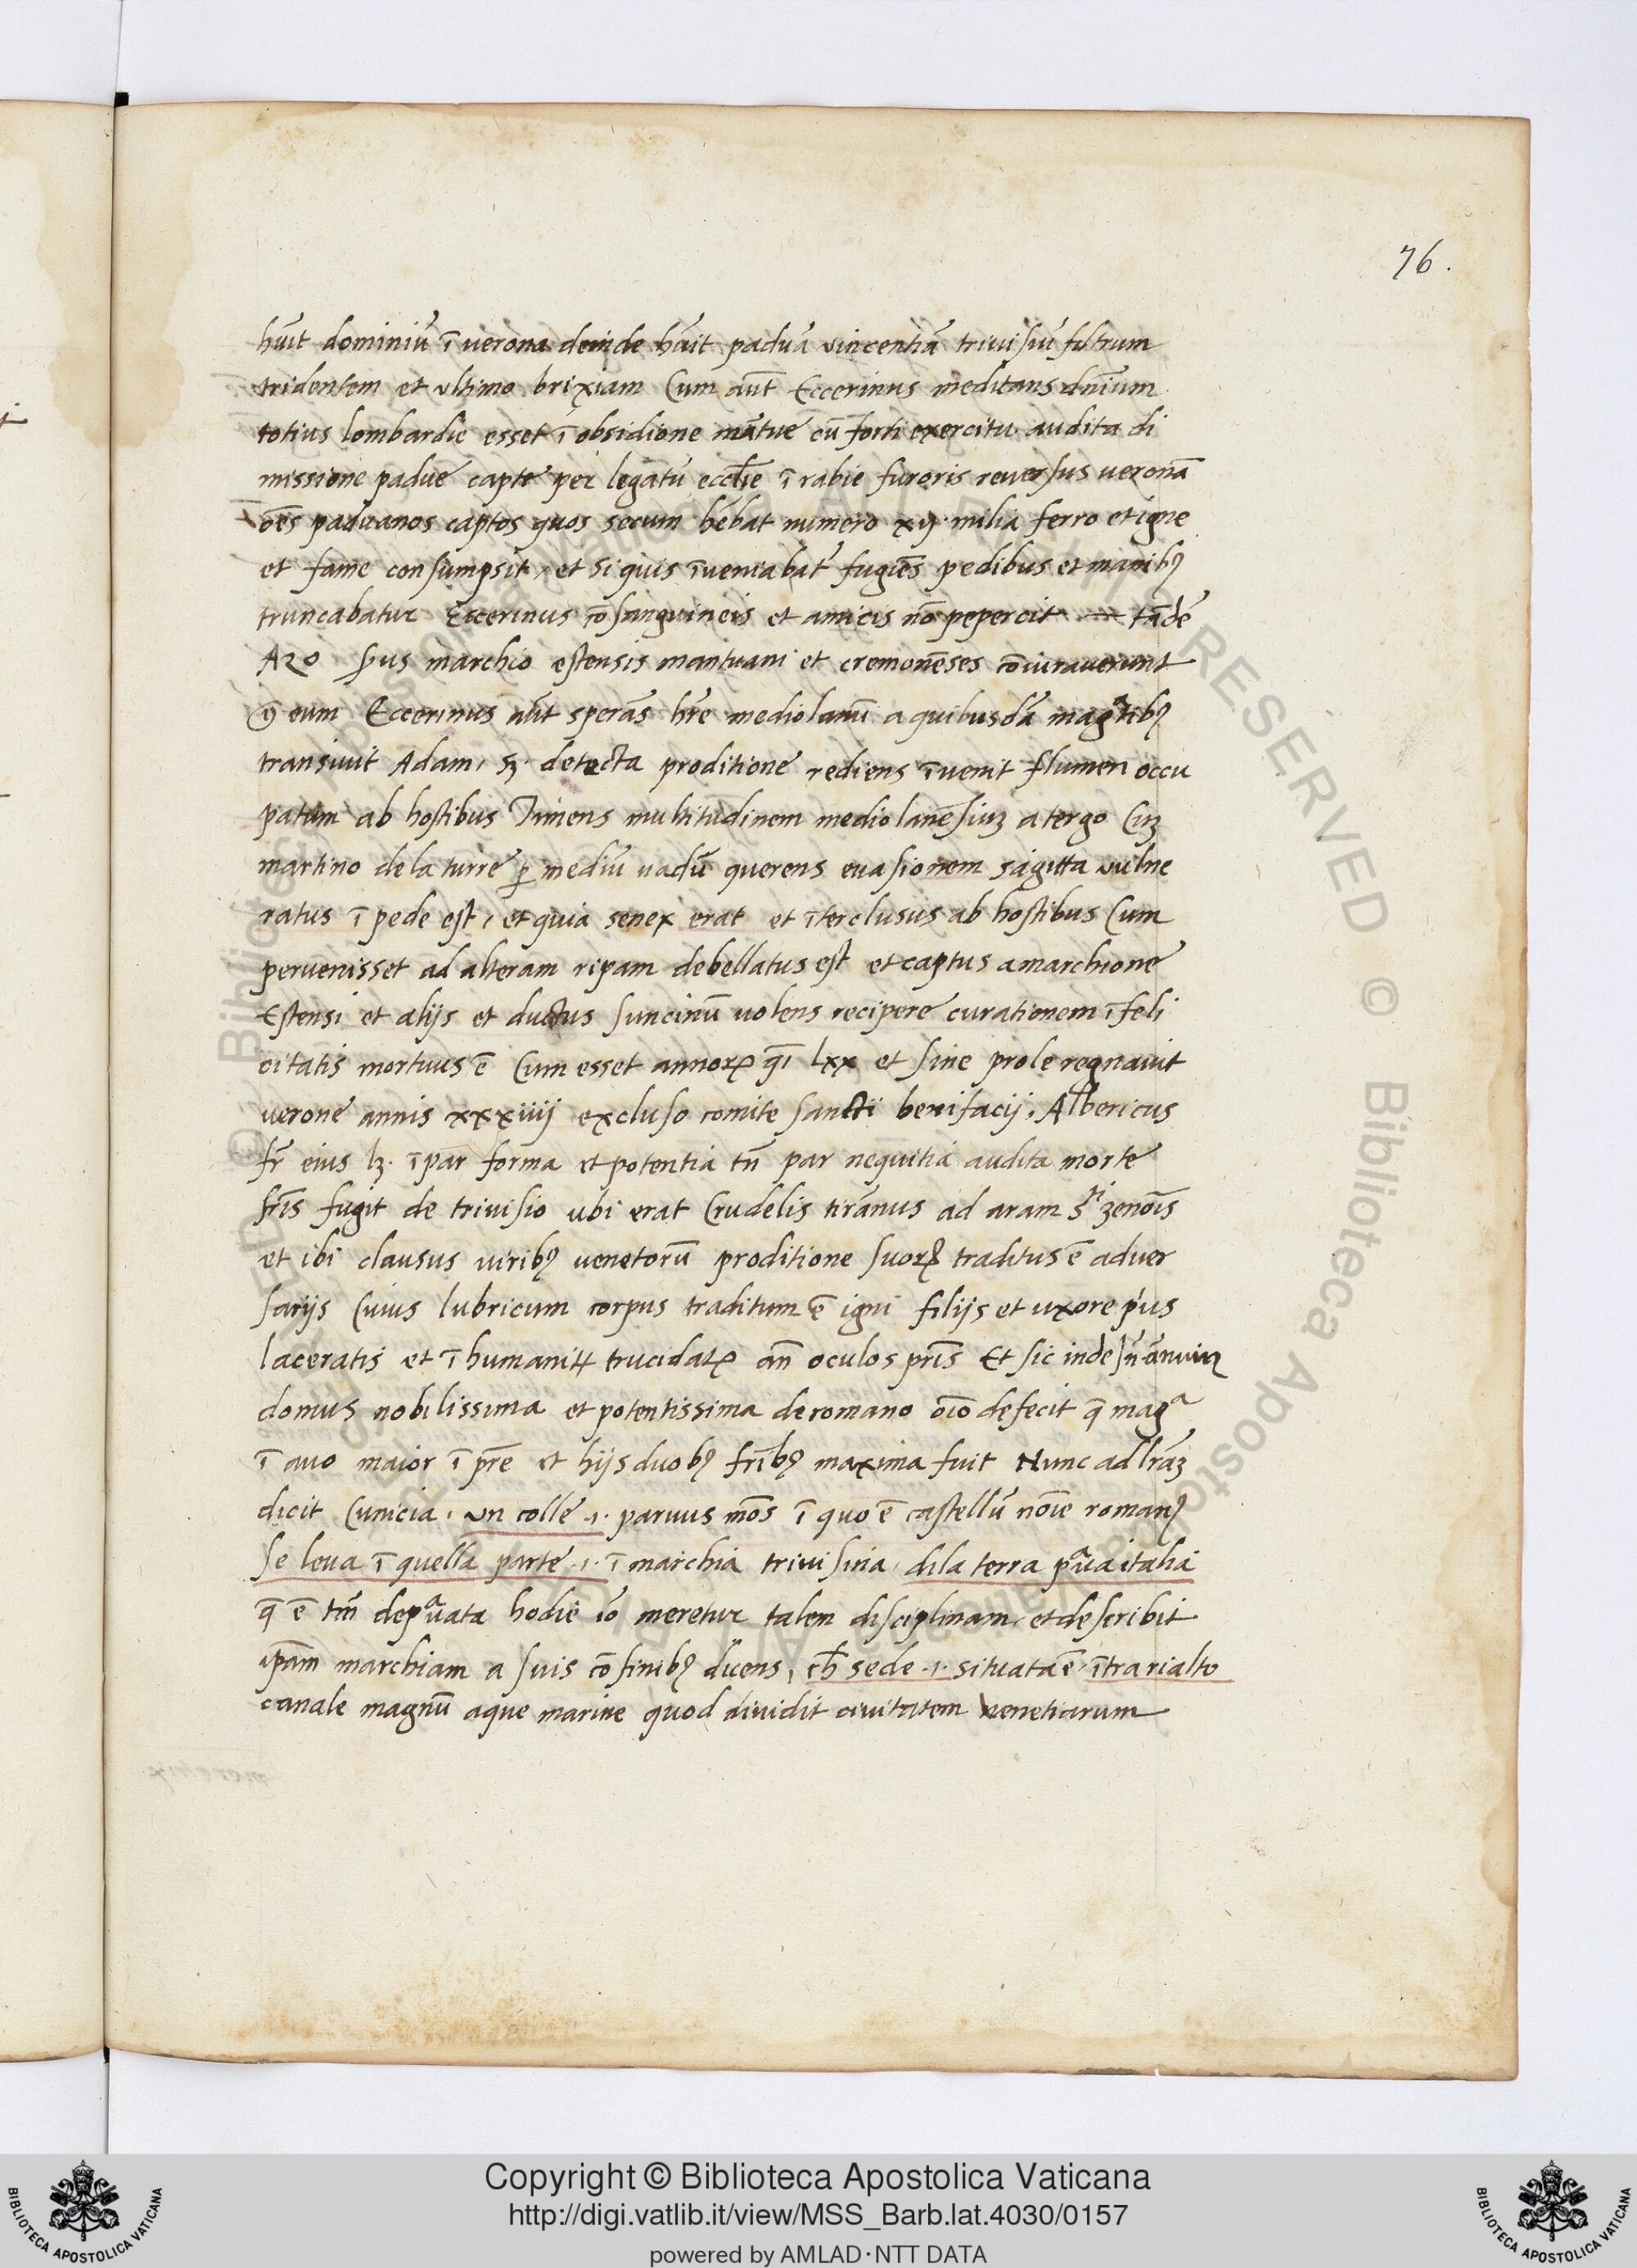 76.
hũit dominiũ ĩ uerona deinde hãuit paduã vincentiã triuisiũ filtrum
tridentem et vltimo brixiam Cum aũt Eccerinus meditans dñium
totius lombardie esset ĩ obsidione mãtue cũ forti exercitu audita di
missione padue capte per legatũ ecclie ĩ rabie furoris reuersus ueronã
oẽs paduanos captos quos secum hẽbat numero xij. milia ferro et igne
et fame consumpsit, et si quis ĩueniabat̃ fugiẽs pedibus et manibꝰ
truncabatur Eccerinus cõsanguineis et amicis nõ pepercit — tãdẽ
Azo marchio estensis mantuani et cremonẽses cõiurauerunt
ꝯ̃ eum Eccerinus aũt sperãs hr̃e mediolanũ a quibusdã magãtibꝰ
transiuit Adam, sꝫ. detecta proditione rediens ĩuenit flumen occu
patum ab hostibus Timens multitudinem mediolanẽsiuꝫ a tergo Cuꝫ
martino dela turre ꝑ mediũ uadũ querens euasionem sagitta vulne
ratus ĩ pede est, et quia senex erat et ĩterclusus ab hostibus Cum
peruenisset ad alteram ripam debellatus est et captus a marchione
Estensi et alijs et ductus suncinũ uolens recipere curationem ĩfeli
citatis mortuus ẽ Cum esset annoꝝ q̃i lxx et sine prole regnauit
uerone annis xxxiiij excluso comite sancti bonifacij, Albericus
fr̃ eius lꝫ. ĩpar forma et potentia tñ par nequitia audita morte
fr̃is fugit de triuisio ubi erat Crudelis tirãnus ad aram sͥ zenoĩs
et ibi clausus uiribꝰ uenetorũ proditione suoꝝ traditus ẽ aduer
sarijs Cuius lubricum corpus traditum ẽ igni filijs et uxore pͥus
laceratis et ĩhumanit̃ trucidatꝭ añ oculos pr̃is Et sic inde
domus nobilissima et potentissima de romano oĩo defecit q̃ magᵃ
ĩ auo maior ĩ pr̃e et hijs duobꝰ fr̃ibꝰ maxima fuit Nunc ad lr̃aꝫ
dicit Cunicia, vn colle .i. paruus mõs ĩ quo ẽ castellũ noĩe romanꝰ
se leua ĩ quella parte .i. ĩ marchia triuisina, dila terra pᵃua italia
q̃ ẽ tm̃ depᵃuata hodie iõ meretur talem disciplinam, et describit
ip̃am marchiam a suis cõfinibꝰ dicens, ch̃ sede .i. situata ẽ, ĩtra rialto
canale magnũ aque marine quod diuidit ciuitatem venetiarum
Copyright © Biblioteca Apostolica Vaticana
http://digi.vatlib.it/view/MSS_Barb.lat.4030/0157
powered by AMLAD·NTT DATA
BIBLIOTECA APOSTOLICA VATICANA
BIBLIOTECA APOSTOLICA VATICANA